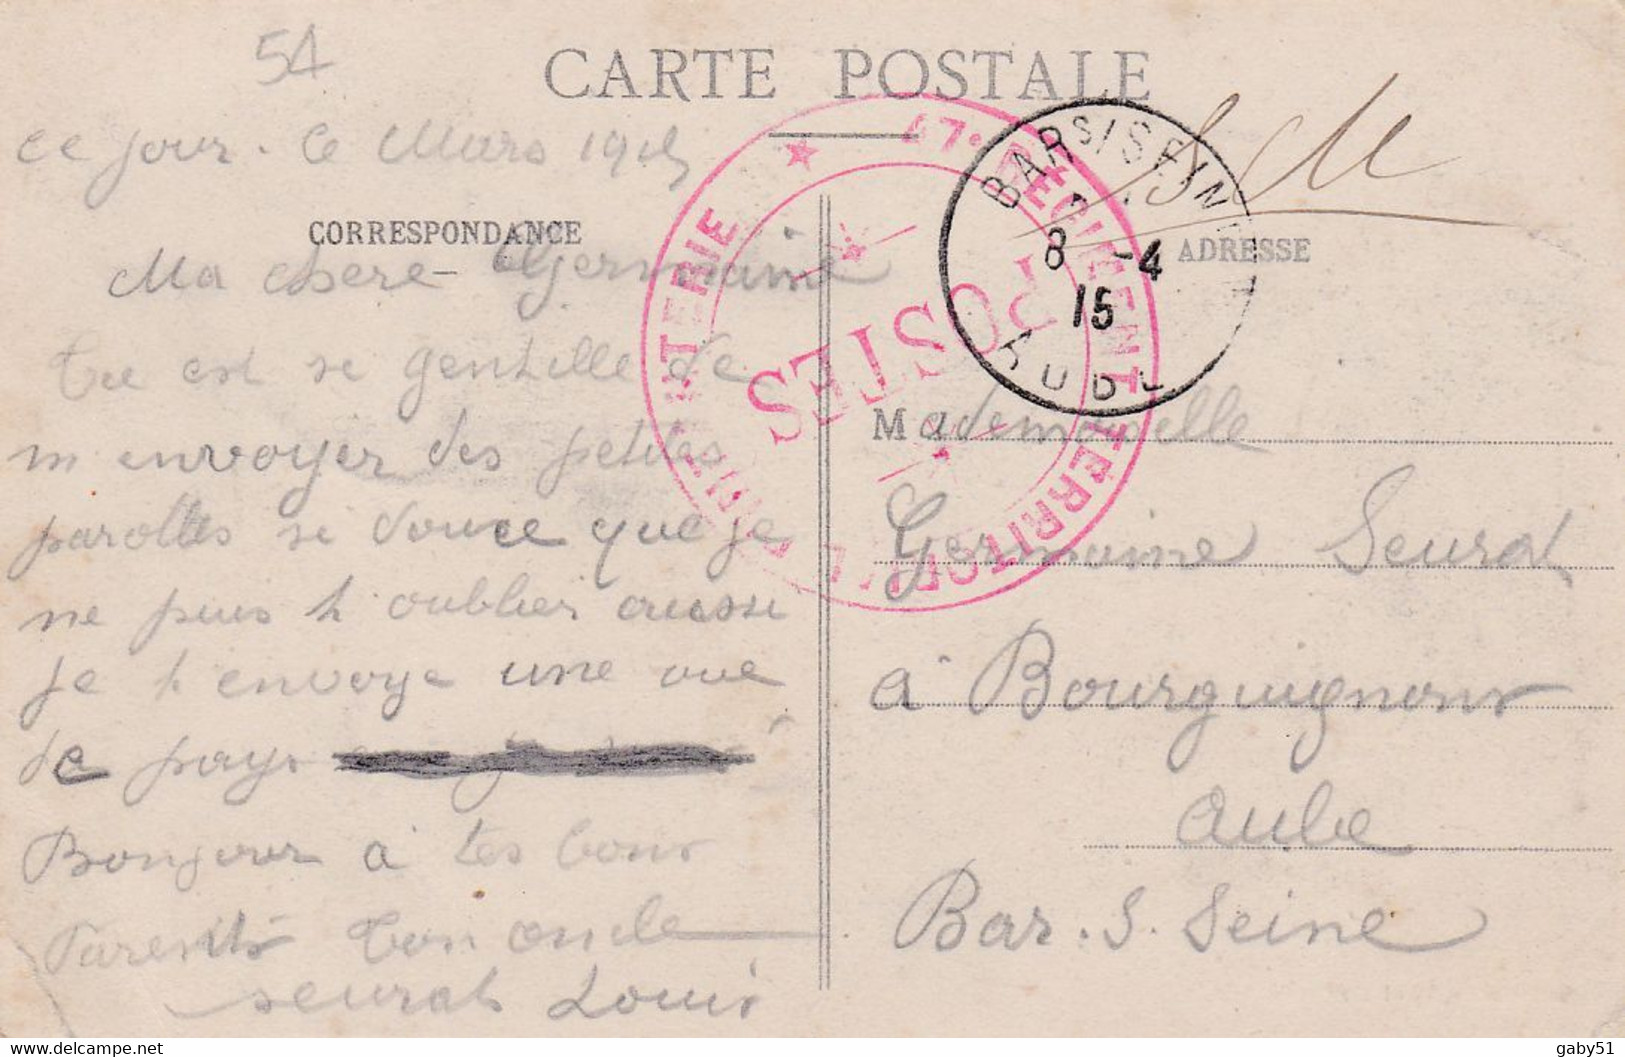 54
CARTE POSTALE
ce jour. le Mars 1915
CORRESPONDANCE
Ma chere Germaine
Tu est se gentille de
m envoyer des petites
parolles si douce que je
ne puis t oublier aussi
je t envoye une vue
de pays
Bonjour à tes bons
Parents Ton oncle
seurat Louis
47e REGIMENT TERRITORIAL D'INFANTERIE
POSTES
BAR S/SEINE
8 -4
15
AUBE
S M
ADRESSE
Mademoiselle
Germaine Seurat
à Bourguignons
Aube
Bar. S. Seine
gaby51